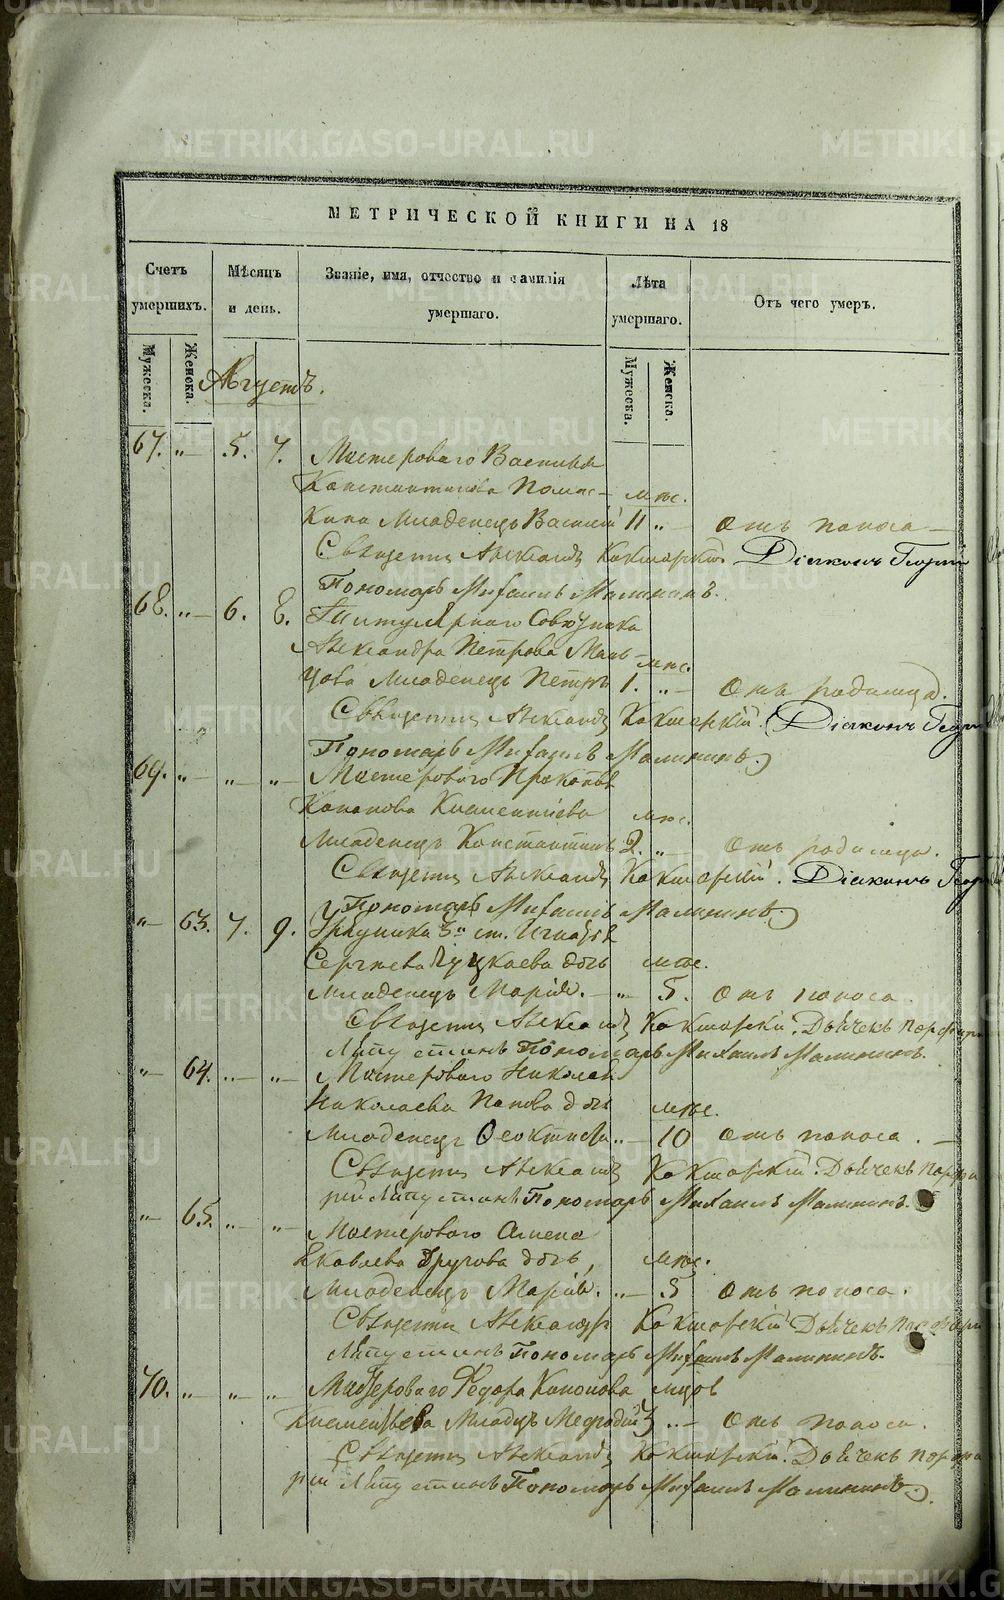 МЕТРИЧЕСКОЙ КНИГИ НА 18
Счетъ умершихъ. Мѣсяцъ и день. Званіе, имя, отчество и фамилія умершаго. Лѣта умершаго. Отъ чего умеръ.
Мужеска. Женска. Мужеска. Женска.
Августъ.
67. „ 5. 7. Мастероваго Василья
Константинова мѣс.
младенецъ Василій 11 „ Отъ поноса
Священникъ Александръ Кокшарскій Діаконъ Георгій
Пономарь Михаилъ Малининъ.
68. „ 6. 8. Титулярнаго Совѣтника
Александра Петрова мѣс.
младенецъ Петръ 1. „ Отъ родимца.
Священникъ Александръ Кокшарскій. Діаконъ
Пономарь Михаилъ Малининъ.
69. „ „ „ Мастероваго Прокопья
Конанова Климентіева мѣс.
младенецъ Константинъ 2. „ Отъ родимца.
Священникъ Александръ Кокшарскій. Діаконъ
Пономарь Михаилъ Малининъ.
„ 63. 7. 9. Урядника 3й ст. Игнатья
Сергѣева дочь мѣс.
младенецъ Марія. „ 5. Отъ поноса.
Священникъ Александръ Кокшарскій. Дьячекъ
Липустинъ Пономарь Михаилъ Малининъ.
„ 64. „ „ Мастероваго Николая
Николаева Попова дочь мѣс.
младенецъ Ѳеоктиста „ 10 Отъ поноса.
Священникъ Александръ Кокшарскій. Дьячекъ Порфи
рій Липустинъ Пономарь Михаилъ Малининъ.
„ 65. „ „ Мастероваго
Яковлева дочь, мѣс.
младенецъ Марія. „ 5 Отъ поноса.
Священникъ Александръ Кокшарскій Дьячекъ Порфирій
Липустинъ Пономарь Михаилъ Малининъ.
70. „ „ „ Мастероваго Ѳедора Кононова мѣсц.
Климентьева младнцъ Меѳодій 3 „ Отъ поноса.
Священникъ Александръ Кокшарскій. Дьячекъ Порфи
рій Липустинъ Пономарь Михаилъ Малининъ.
METRIKI.GASO-URAL.RU